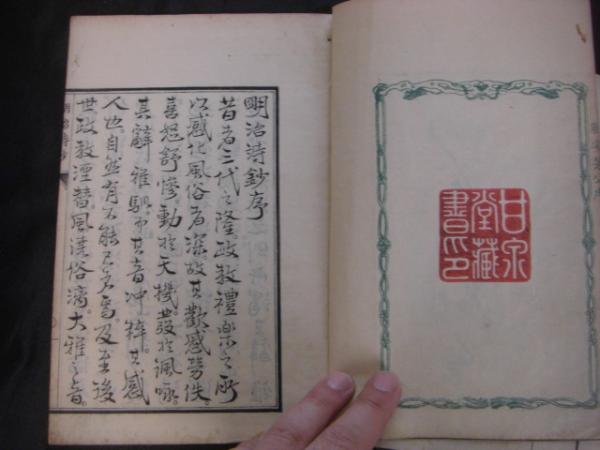 明治詩鈔序
昔者三代之隆政教禮樂之所
以感化風俗者深故其歡感勞佚
喜怒舒慘動於天機發於諷咏
其辭雅馴而其音冲粹其感
人也自然有不能已者焉及至後
世政教湮替風漓俗漓大雅之音
甘泉
堂藏
書印